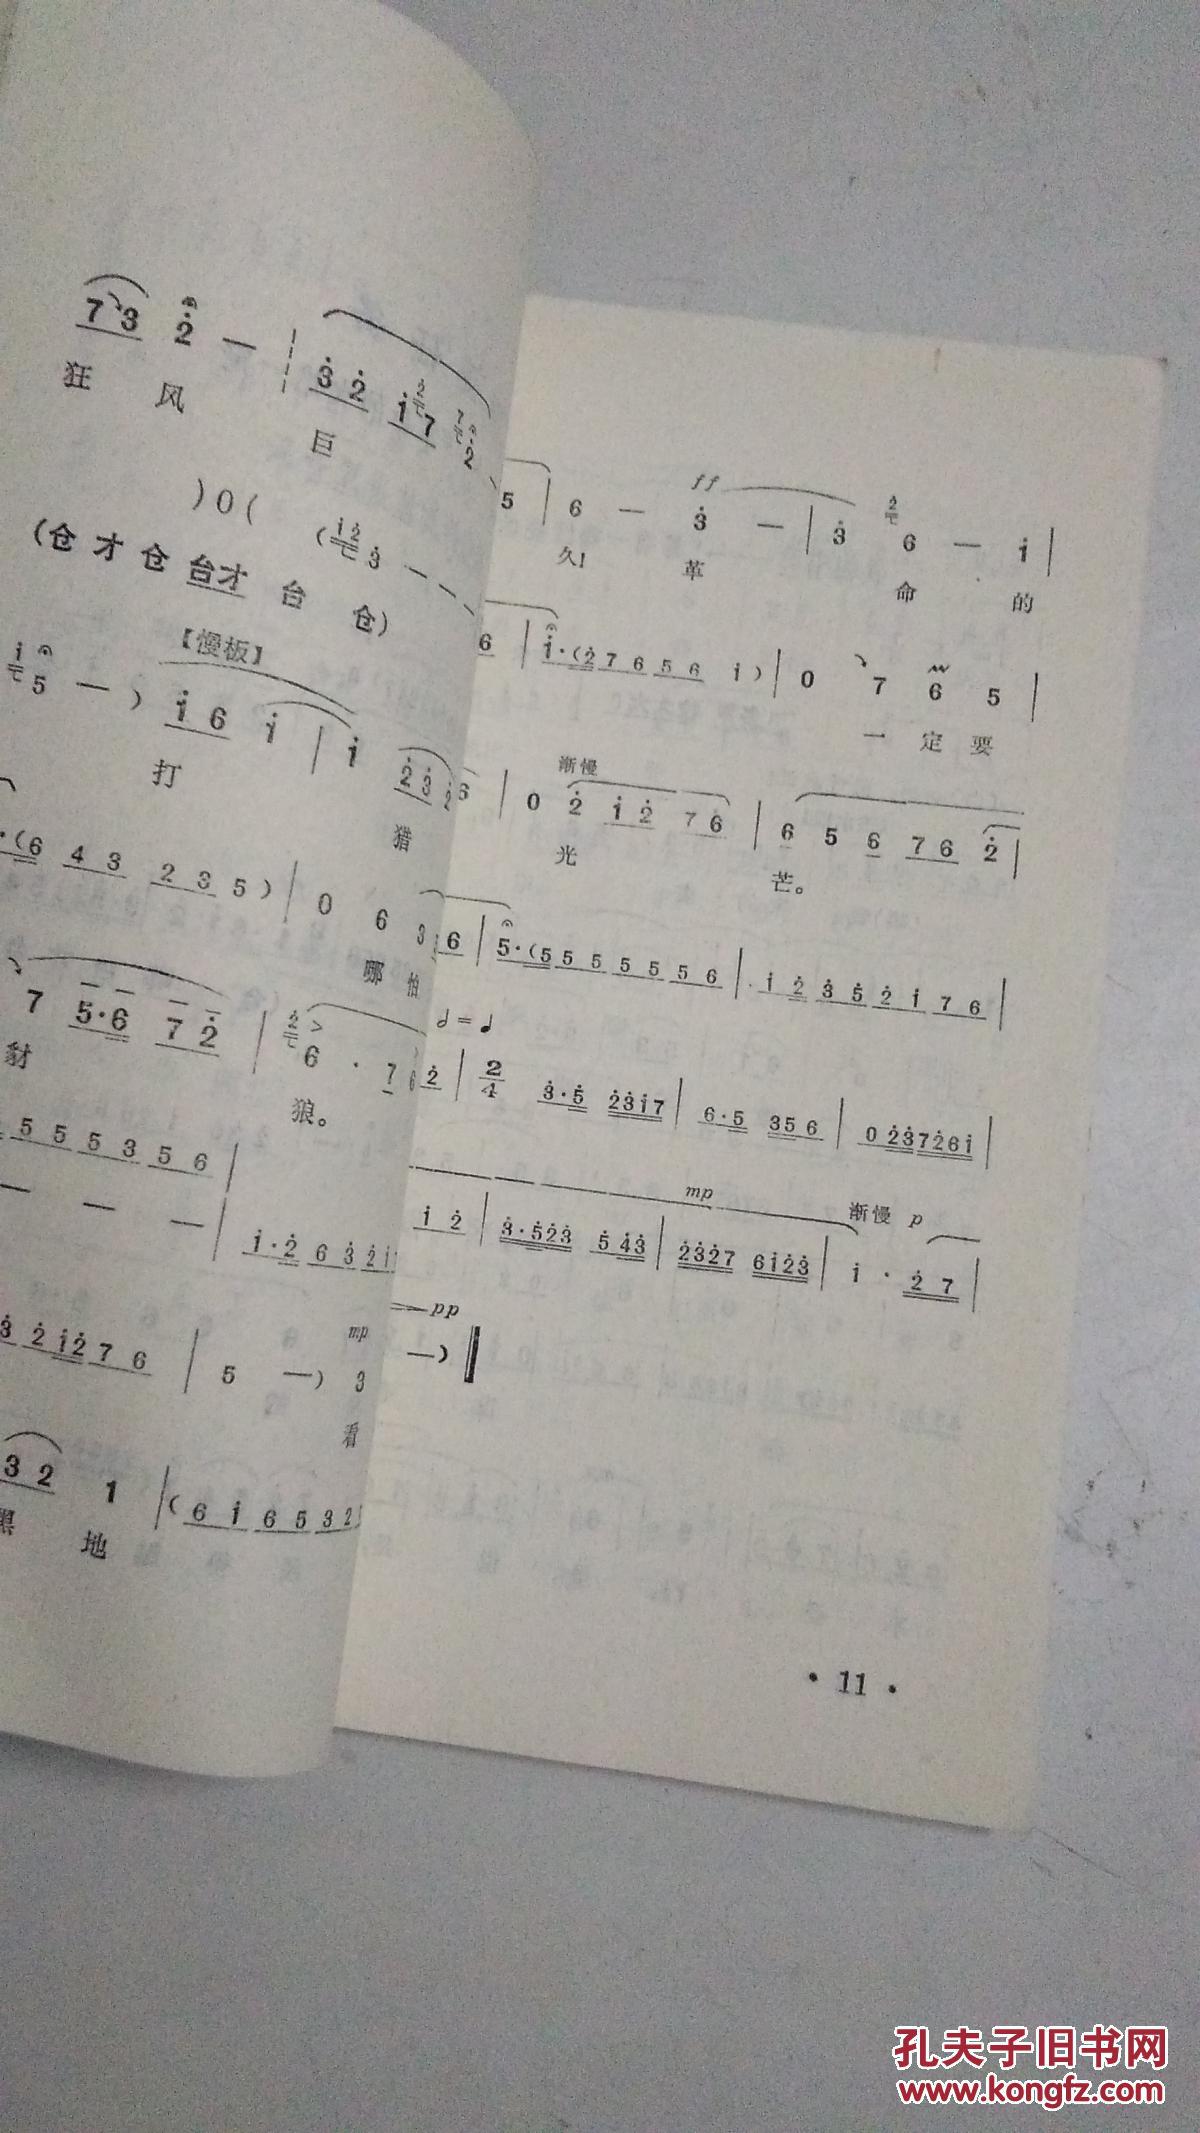 7 3 2 — 3 2 1 7 2
狂 风 巨
) 0 (
(仓 才 仓 台才 台 仓)
【慢板】
5 — ) 1 6 1 | 1 2 3 2
打 猎
(6 4 3 2 3 5 ) | 0 6 3
哪 怕
7 5·6 7 2 | 6 · 7 6
豺 狼。
5 5 5 3 5 6 |
— — — | 1·2 6 3 2 1
mp
3 2 1 2 7 6 | 5 —) 3
看
3 2 1 | (6 1 6 5 3 2
黑 地
ff
5 | 6 — 3 — | 3 6 — 1 |
久! 革 命 的
6 | 1·(2 7 6 5 6 1 ) | 0 7 6 5 |
一 定 要
渐慢
6 | 0 2 1 2 7 6 | 6 5 6 7 6 2 |
光 芒。
6 | 5·(5 5 5 5 5 5 6 | 1 2 3 5 2 1 7 6 |
2 | 2/4 3·5 2 3 1 7 | 6·5 3 5 6 | 0 2 3 7 2 6 1 |
mp 渐慢 p
1 2 | 3·5 2 3 5 4 3 | 2 3 2 7 6 1 2 3 | 1 · 2 7 |
pp
—)
· 11 ·
孔夫子旧书网
www.kongfz.com